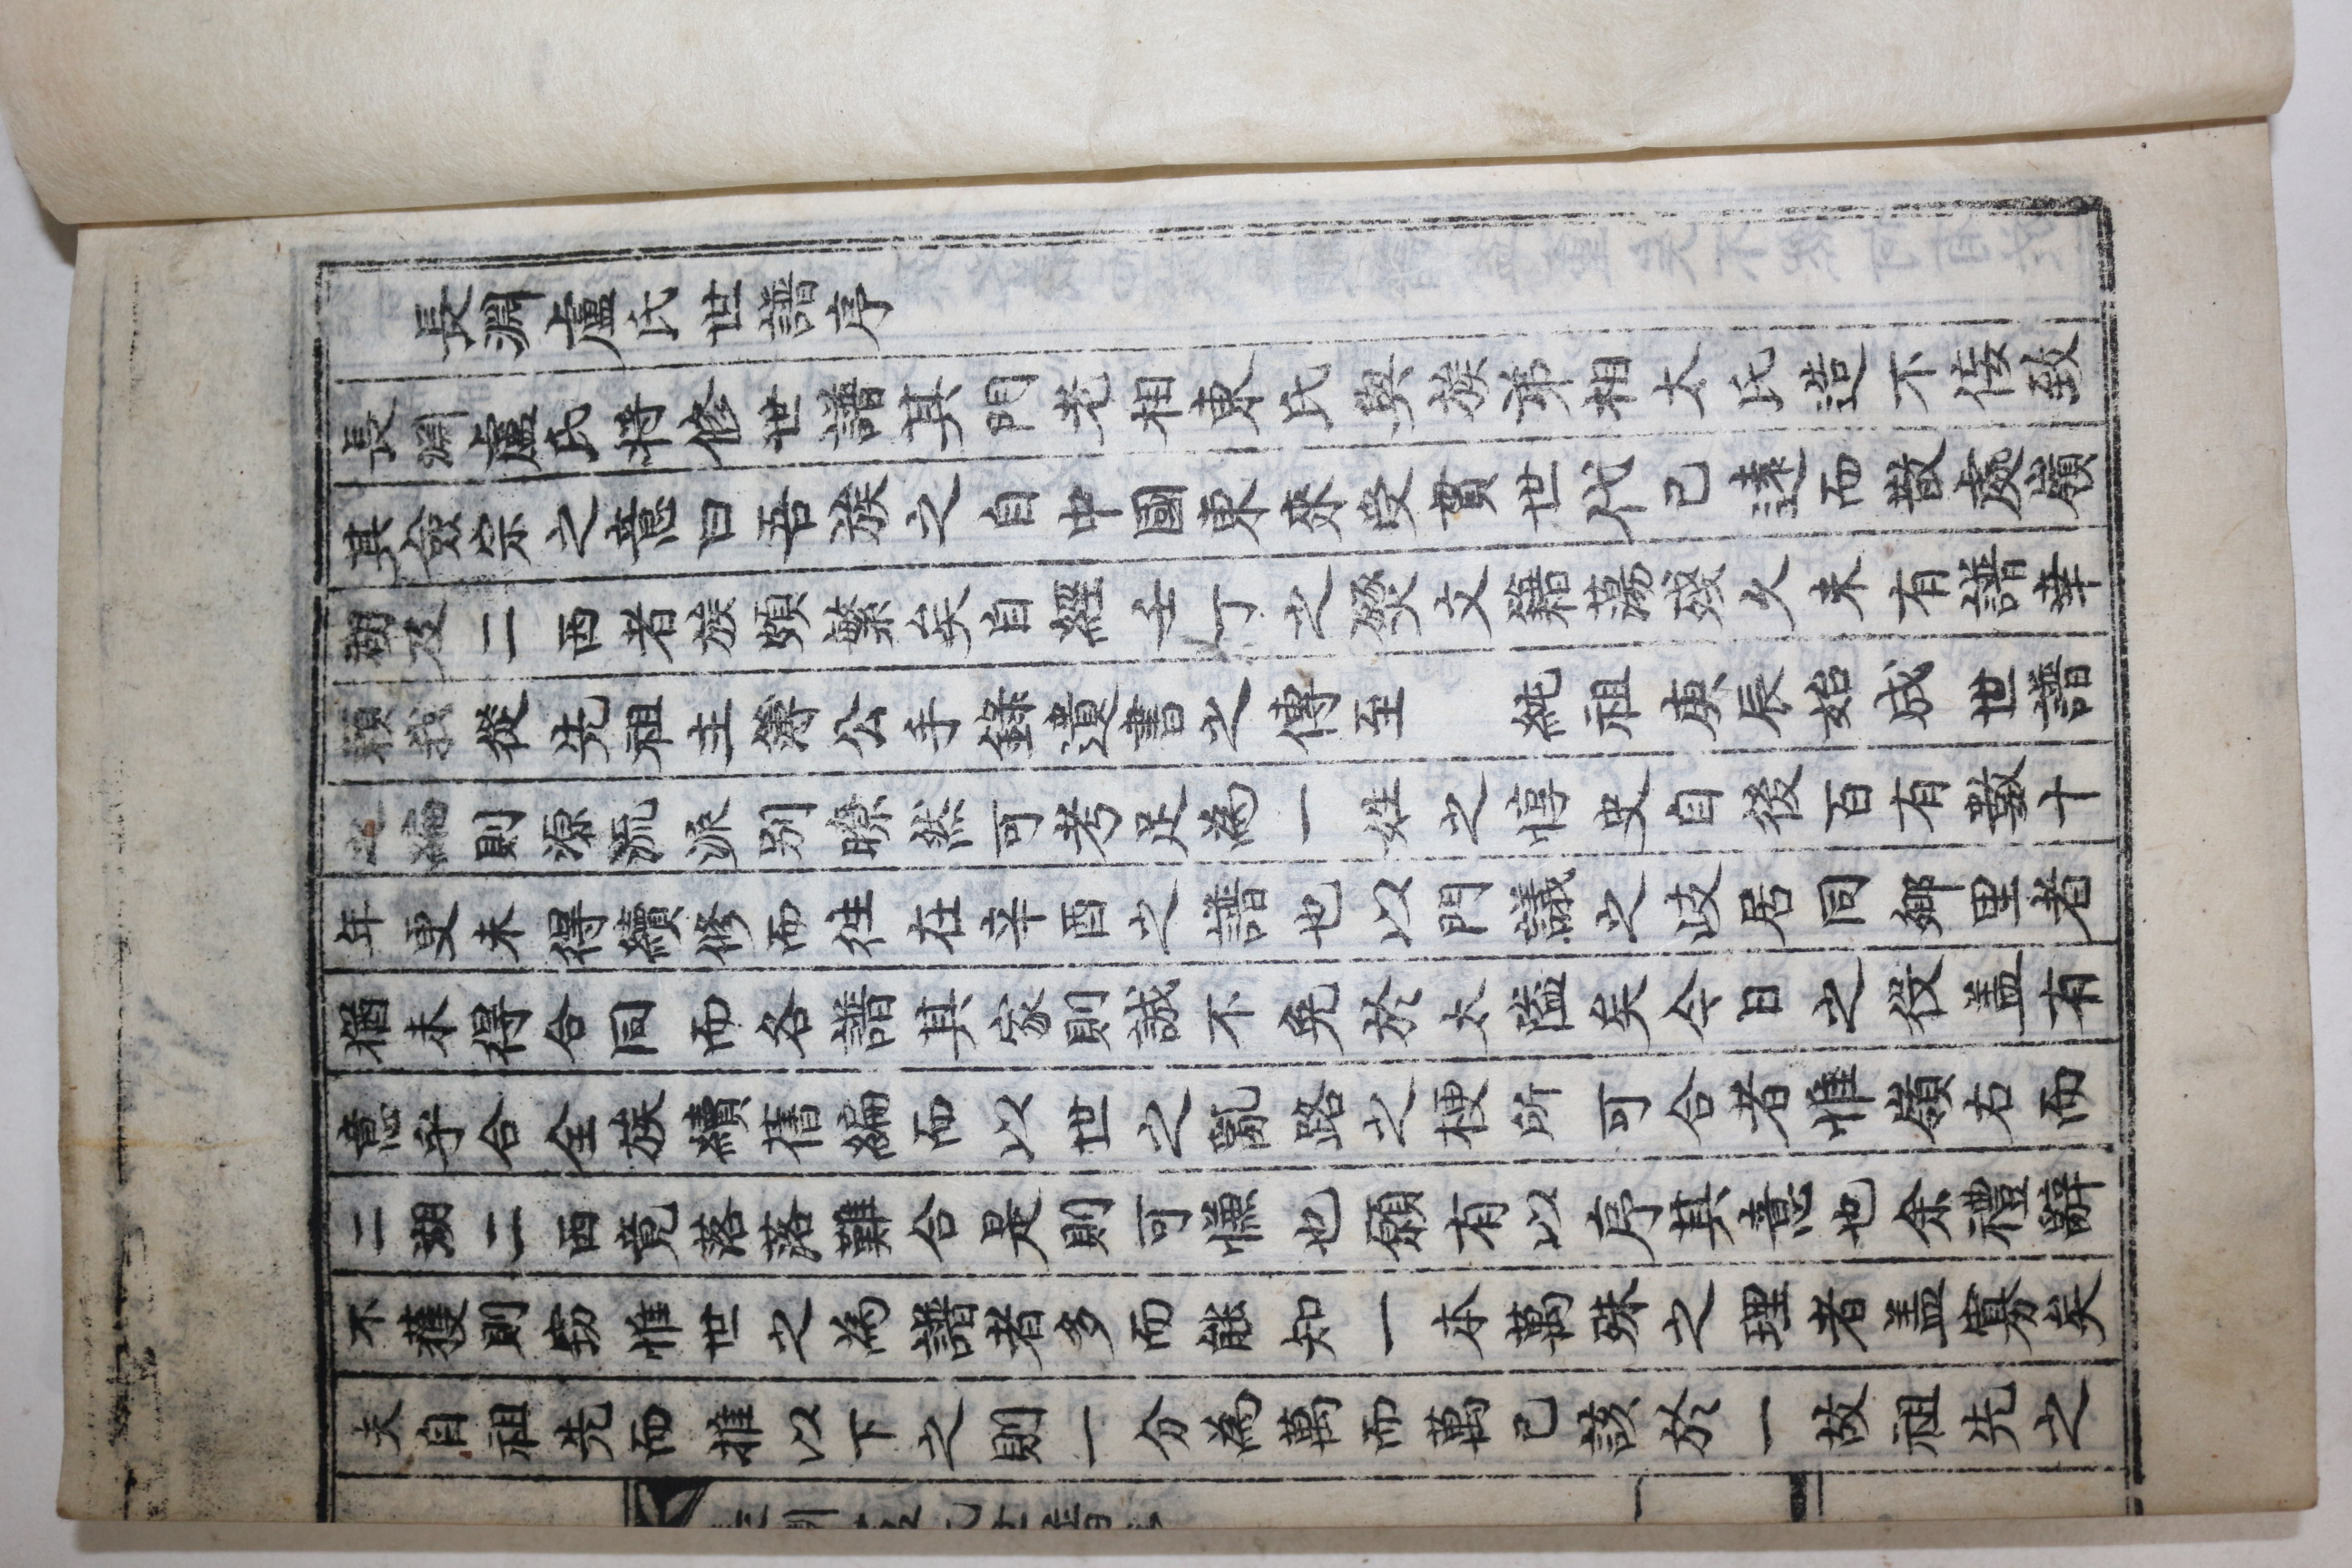 長淵盧氏世譜序
長淵盧氏將修世譜其門老相東氏與族弟相太氏造不侫致
其僉宗之意曰吾族之自中國東來受貫世代已遠而散處嶺
湖及二西者族頗繁矣自經壬丁之燹文籍蕩殘久未有譜幸
賴我從先祖主簿公手錄遺書之傳至　純祖庚辰始成世譜
之編則源流派別瞭然可考足為一姓之惇史自後百有數十
年更未得續修而徃在辛酉之譜也以門議之歧居同鄉里者
猶未得合同而各譜其家則誠不免於太隘矣今日之役盖有
意乎合全族續舊編而以世之亂路之梗所可合者惟嶺右而
二湖二西竟落落難合是則可慊也願有以序其意也余禮辭
不獲則竊惟世之為譜者多而能知一本萬殊之理者盖寡矣
夫自祖先而推以下之則一分為萬而萬已該於一故祖先之